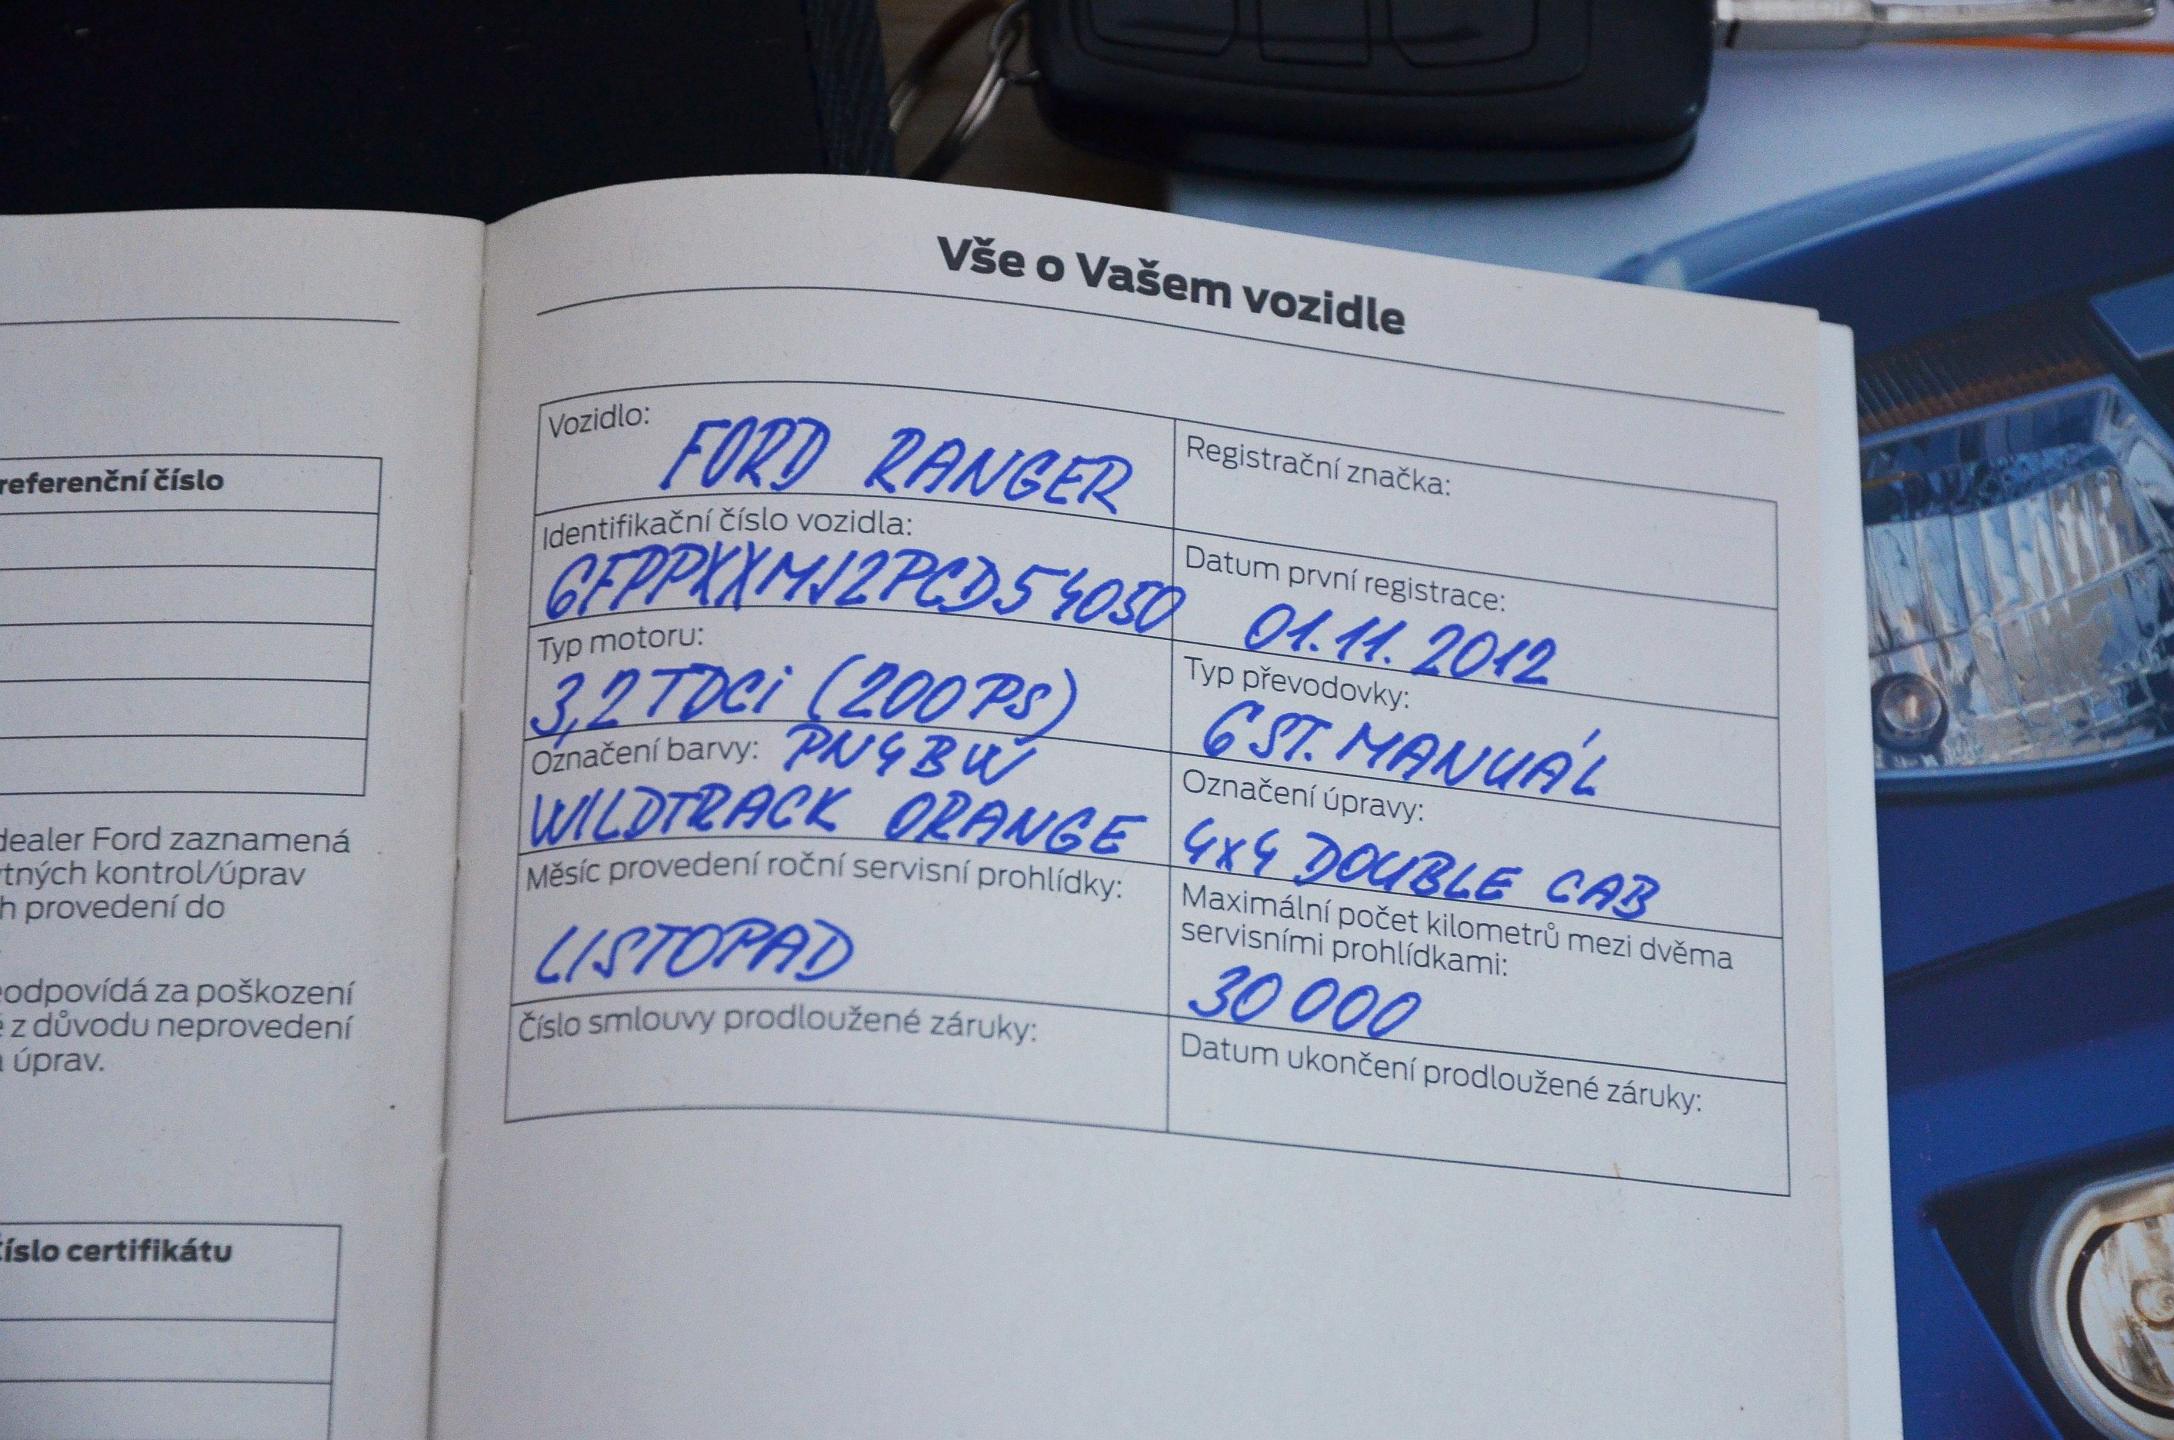 referenční číslo
dealer Ford zaznamená
tných kontrol/úprav
h provedení do
odpovídá za poškození
z důvodu neprovedení
úprav.
číslo certifikátu
Vše o Vašem vozidle
Vozidlo: FORD RANGER
Registrační značka:
Identifikační číslo vozidla:
6FPPXXMJ2PCD54050
Datum první registrace:
01.11.2012
Typ motoru:
3,2 TDCi (200PS)
Typ převodovky:
6 ST. MANUÁL
Označení barvy: PN4BW
WILDTRACK ORANGE
Označení úpravy:
4x4 DOUBLE CAB
Měsíc provedení roční servisní prohlídky:
LISTOPAD
Maximální počet kilometrů mezi dvěma
servisními prohlídkami:
30 000
Číslo smlouvy prodloužené záruky:
Datum ukončení prodloužené záruky: